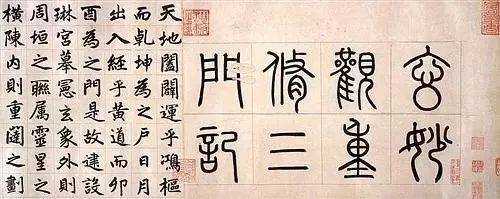 玄妙
觀重
脩三
門記
天地闔闢運乎鴻樞
而乾坤為之戶日月
出入經乎黃道而卯
酉為之門是故建設
琳宮摹憲玄象外則
周垣之聯属靈星之
橫陳內則重闥之劃